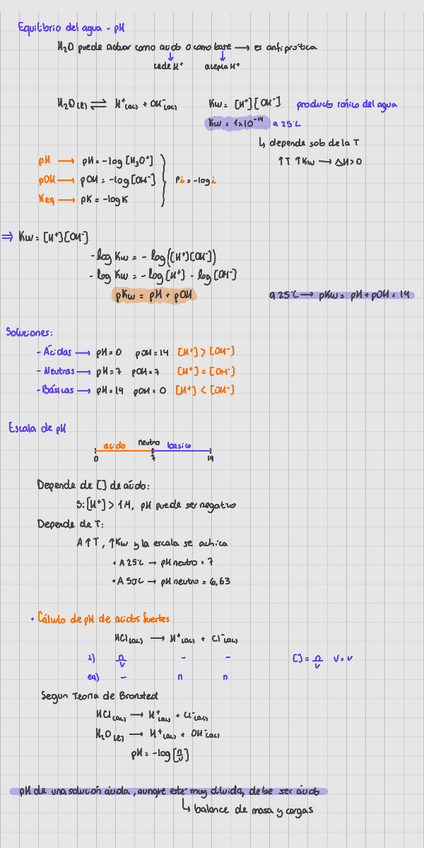 Equilibrio del agua - pH
H₂O puede actuar como ácido o como base → es anfiprótica
cede H⁺ acepta H⁺
H₂O(l) ⇌ H⁺(ac) + OH⁻(ac) Kw = [H⁺][OH⁻] producto iónico del agua
Kw = 1x10⁻¹⁴ a 25°C
↳ depende solo de la T
↑T ↑Kw → ΔH>0
pH → pH = -log[H₃O⁺]
pOH → pOH = -log[OH⁻] } Pi = -log i
Keq → pK = -log K
⇒ Kw = [H⁺][OH⁻]
-log Kw = -log([H⁺][OH⁻])
-log Kw = -log[H⁺] - log[OH⁻]
pKw = pH + pOH a 25°C → pKw = pH + pOH = 14
Soluciones:
- Ácidas → pH = 0 pOH = 14 [H⁺] > [OH⁻]
- Neutras → pH = 7 pOH = 7 [H⁺] = [OH⁻]
- Básicas → pH = 14 pOH = 0 [H⁺] < [OH⁻]
Escala de pH
ácido neutro básico
0 7 14
Depende de [] de ácido:
Si [H⁺] > 1M, pH puede ser negativo
Depende de T:
A ↑T, ↑Kw y la escala se achica
• A 25°C → pH neutro = 7
• A 50°C → pH neutro = 6,63
• Cálculo de pH de ácidos fuertes
HCl(ac) → H⁺(ac) + Cl⁻(ac)
i) n/v - - [] = n/v V = v
eq) - n n
Según Teoría de Bronsted
HCl(ac) → H⁺(ac) + Cl⁻(ac)
H₂O(l) → H⁺(ac) + OH⁻(ac)
pH = -log[n/v]
pH de una solución ácida, aunque esté muy diluida, debe ser ácido
↳ balance de masa y cargas